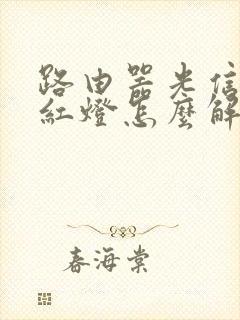 路由器光信
紅燈怎麼解
春海棠